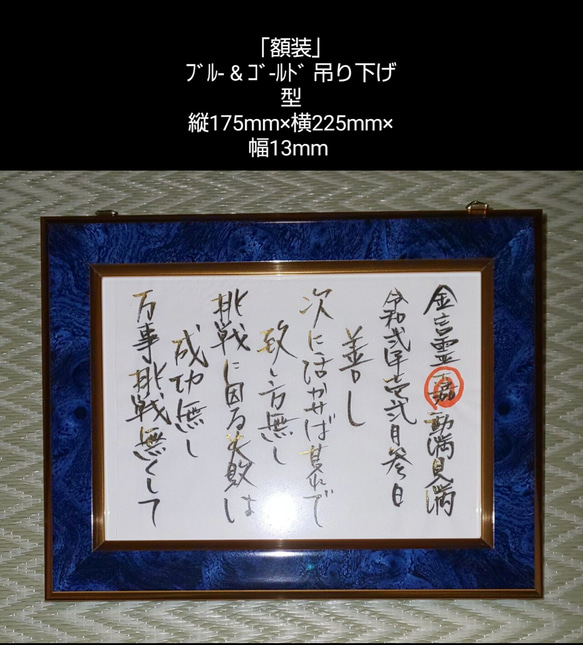 「額装」
ﾌﾞﾙｰ & ｺﾞｰﾙﾄﾞ 吊り下げ
型
縦175mm×横225mm×
幅13mm
万事挑戦無くして
成功無し
挑戦に因る失敗は
致し方無し
次に活かせば其れで
善し
令和弐年壱弐月参日
金言霊 満見満